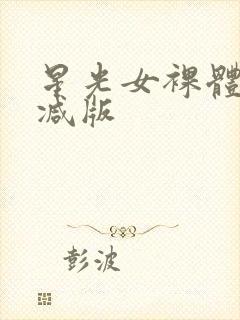 星光女裸體
减版
彭波